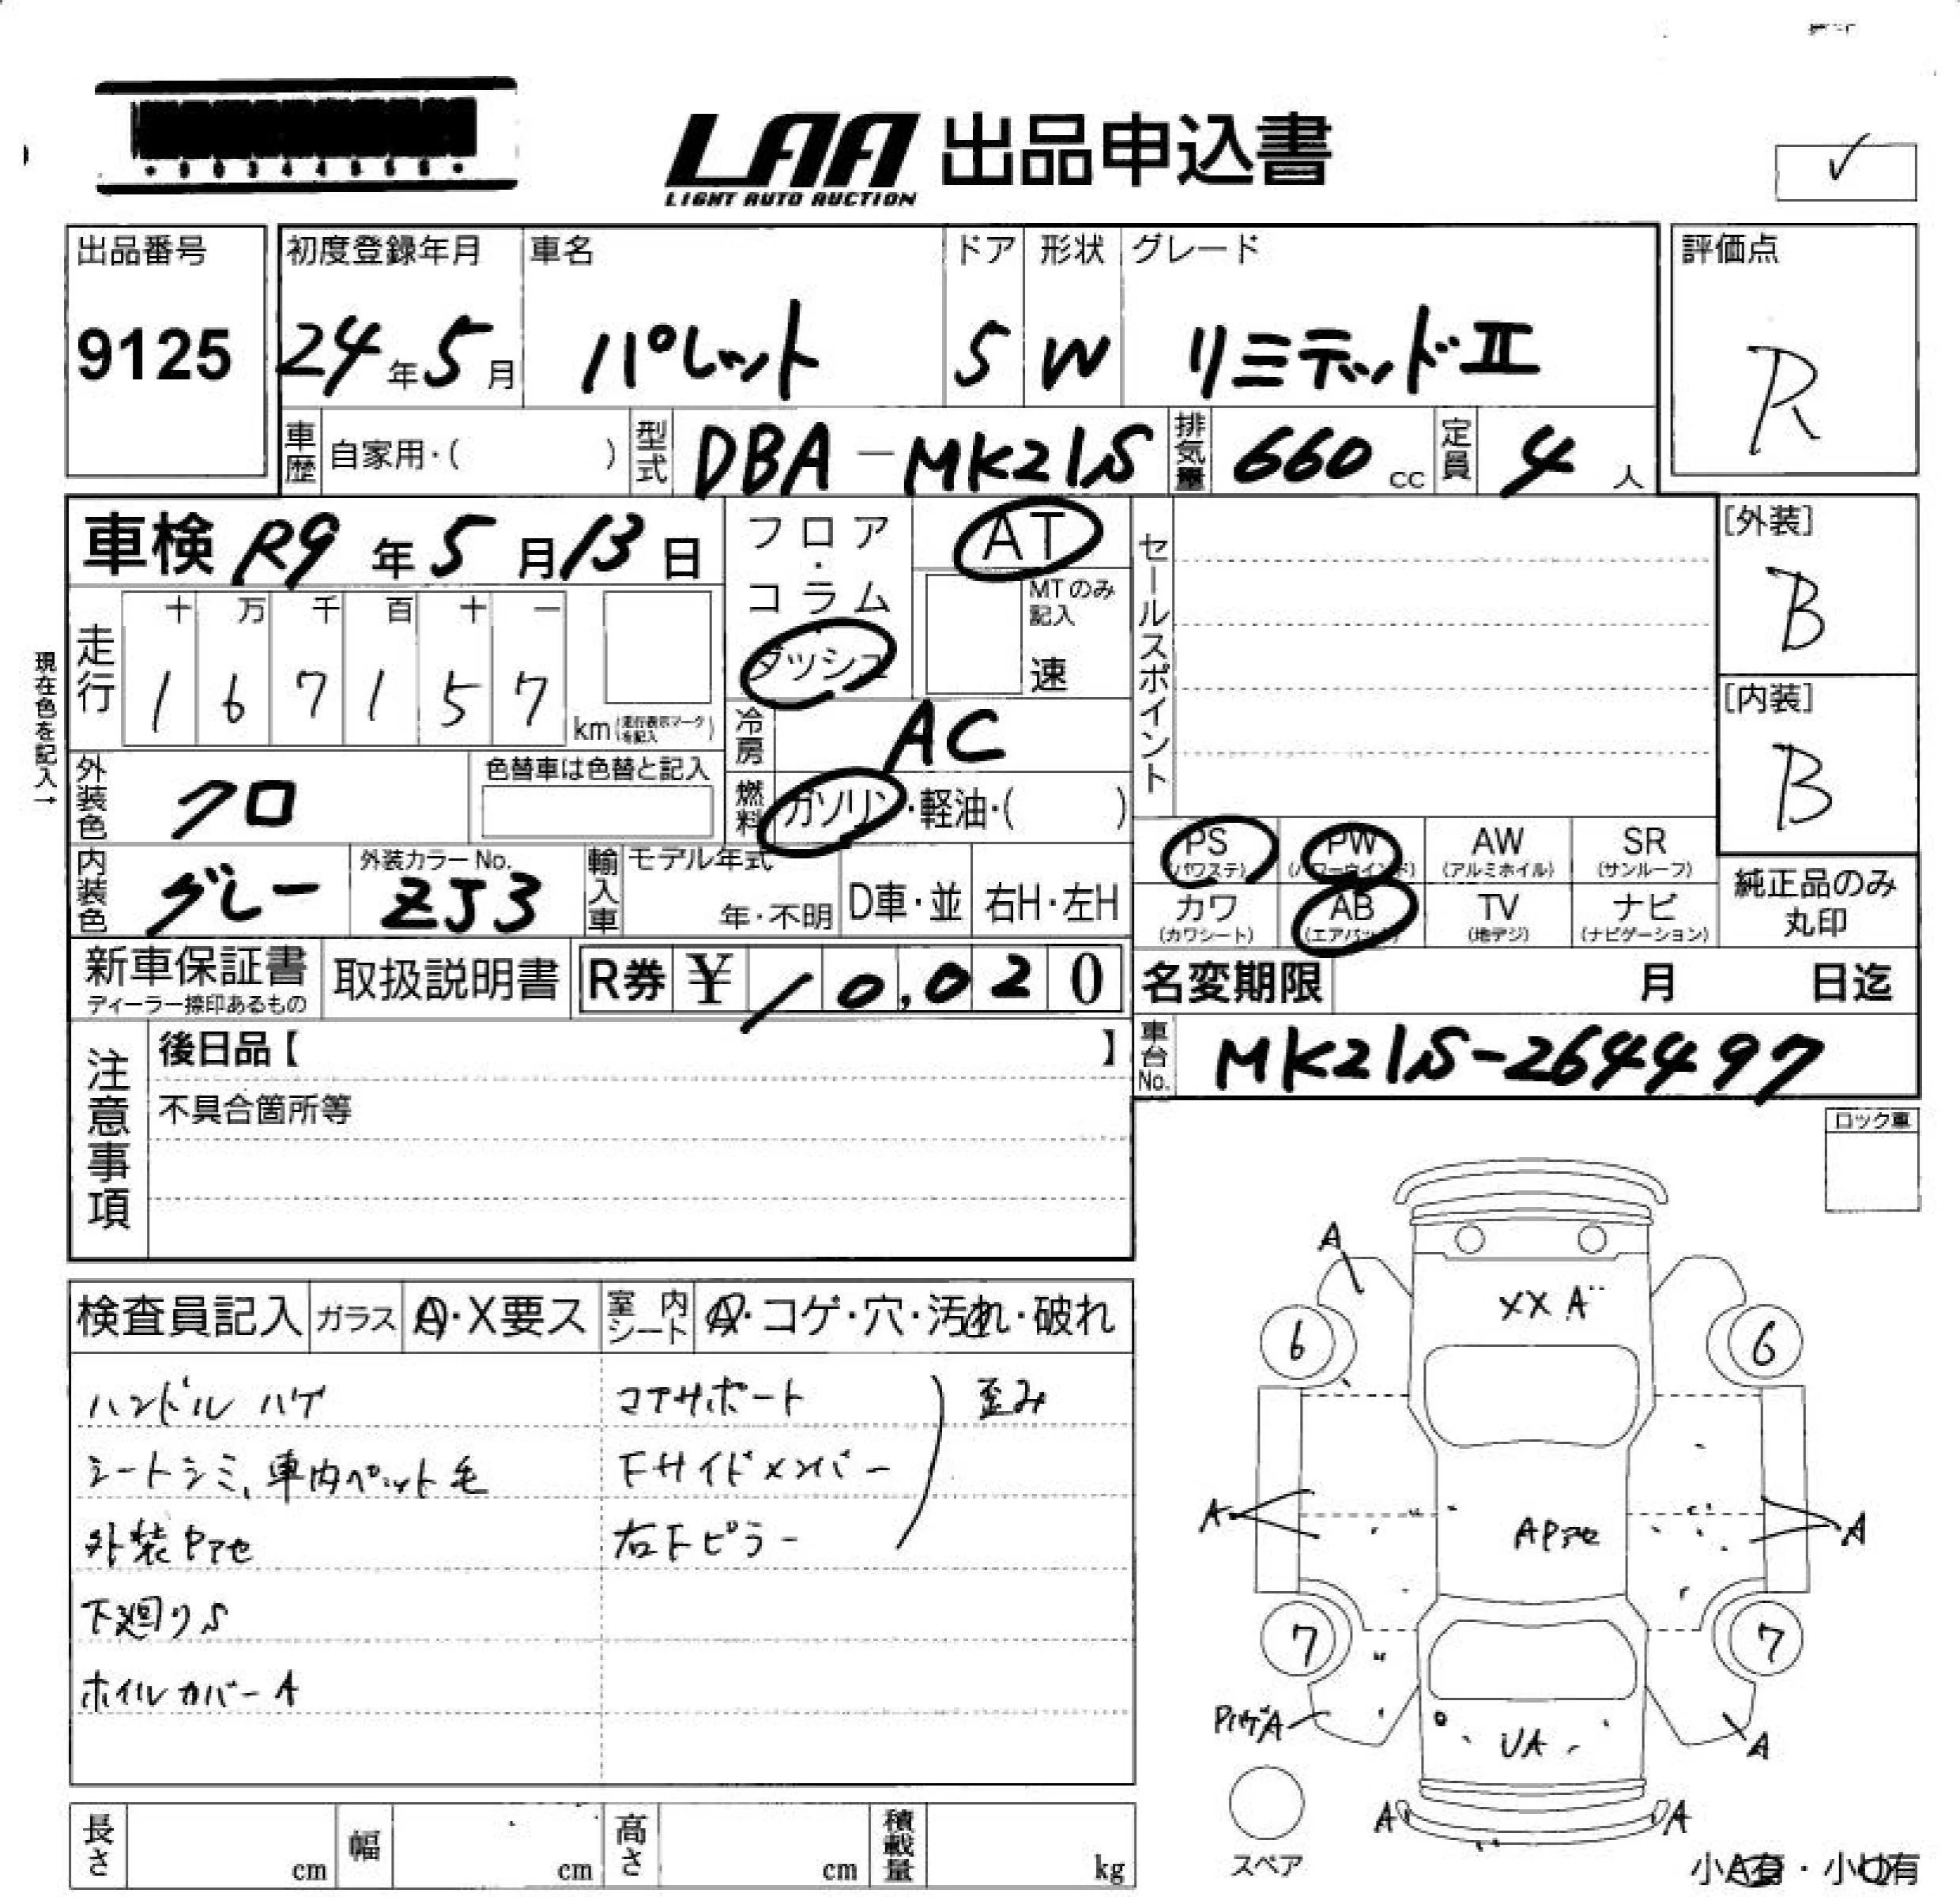 LAA 出品申込書
LIGHT AUTO AUCTION
出品番号
9125
初度登録年月
24年5月
車名
パレット
ドア
5
形状
W
グレード
リミテッドⅡ
評価点
R
車歴 自家用・( )
型式 DBA-MK21S
排気量 660 cc
定員 4 人
車検 R9年5月13日
フロア・コラム・ダッシュ
AT
MTのみ記入
速
セールスポイント
[外装]
B
[内装]
B
現在色を記入→
走行
十 万 千 百 十 一
1 6 7 1 5 7 km(走行表示マークを記入)
冷房 AC
燃料 ガソリン・軽油・( )
外装色 クロ
色替車は色替と記入
内装色 グレー
外装カラーNo. ZJ3
輸入車 モデル年式
年・不明
D車・並
右H・左H
PS (パワステ)
PW (パワーウインド)
AW (アルミホイル)
SR (サンルーフ)
カワ (カワシート)
AB (エアバック)
TV (地デジ)
ナビ (ナビゲーション)
純正品のみ丸印
新車保証書
ディーラー捺印あるもの
取扱説明書
R券 ¥ 10,020
名変期限 月 日迄
車台No. MK21S-264497
注意事項
後日品【 】
不具合箇所等
ロック車
検査員記入 ガラス A・X要ス 室内シート A・コゲ・穴・汚れ・破れ
ハンドル ハゲ
シートシミ、車内ペット毛
外装Pアセ
下廻りS
ホイルカバーA
コアサポート
Fサイドメンバー
右Fピラー
歪み
A
XX A
6 6
A APアセ A
7 7
PハゲA UA A
A A
スペア
小A有・小U有
長さ cm 幅 cm 高さ cm 積載量 kg